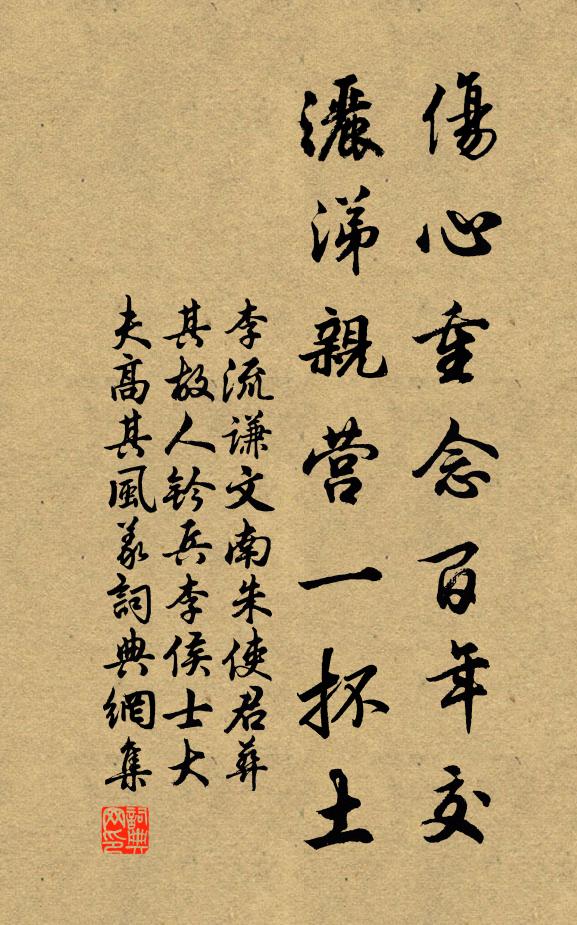 傷心重念百年交
灑涕親营一抔土
李流謙文南朱使君葬
其故人鈐兵李侯士大
夫高其風義詞典網集
詞典网印